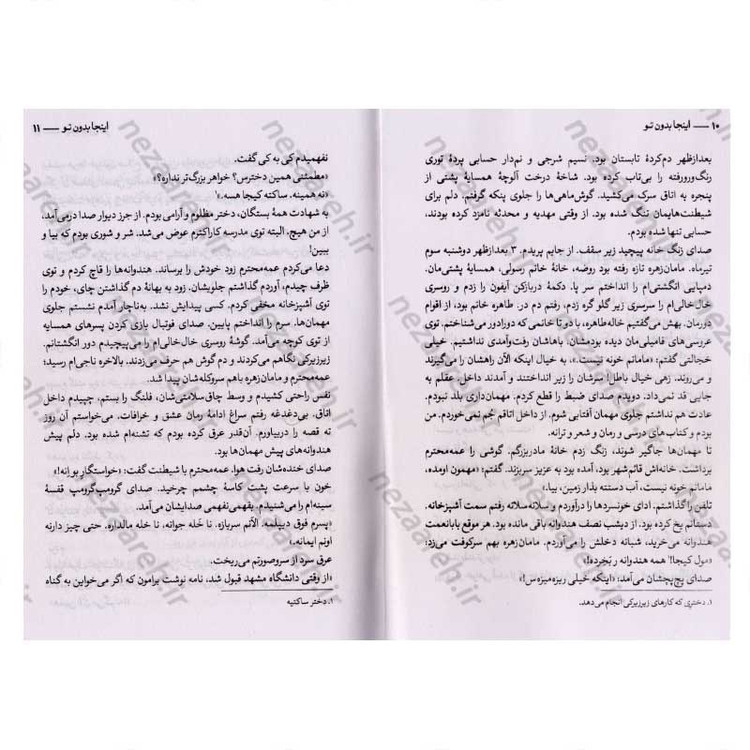 ۱۰ — اینجا بدون تو
بعدازظهر دم‌کردهٔ تابستان بود. نسیم شرجی و نم‌دار حسابی پردهٔ توری
رنگ‌ورورفته را بی‌تاب کرده بود. شاخهٔ درخت آلوچهٔ همسایهٔ پشتی از
پنجره به اتاق سرک می‌کشید. گوش‌ماهی‌ها را جلوی پنکه گرفتم، دلم برای
شیطنت‌هایمان تنگ شده بود. از وقتی مهدیه و محدثه نامزد کرده بودند،
حسابی تنها شده بودم.
صدای زنگ خانه پیچید زیر سقف. از جایم پریدم. ۳ بعدازظهر دوشنبه سوم
تیرماه. مامان‌زهره تازه رفته بود روضه، خانهٔ خانم رسولی، همسایهٔ پشتی‌مان.
دمپایی انگشتی‌ام را انداختم سر پا. دکمهٔ دربازکن آیفون را زدم و روسری
خال‌خالی‌ام را سرسری زیر گلو گره زدم، رفتم دم در. طاهره خانم بود، از اقوام
دورمان. بهش می‌گفتیم خاله‌طاهره، با دو تا خانمی که دورادور می‌شناختم. توی
عروسی‌های فامیلی‌مان دیده بودمشان. باهاشان رفت‌وآمدی نداشتیم. خیلی
خجالتی گفتم: «مامانم خونه نیست.»، به خیال اینکه الآن راهشان را می‌گیرند
و می‌روند. زهی خیال باطل! سرشان را زیر انداختند و آمدند داخل. عقلم به
جایی قد نمی‌داد. دویدم صدای ضبط را قطع کردم. مهمان‌داری بلد نبودم.
عادت هم نداشتم جلوی مهمان آفتابی شوم. از داخل اتاقم جُم نمی‌خوردم. من
بودم و کتاب‌های درسی و رمان و شعر و ترانه.
تا مهمان‌ها جاگیر شوند، زنگ زدم خانهٔ مادربزرگم. گوشی را عمه‌محترم
برداشت. خانه‌اش قائم‌شهر بود، آمده بود به عزیز سر بزند. گفتم: «مهمون اومده،
مامانم خونه نیست، آب دستته بذار زمین، بیا.»
تلفن را گذاشتم. ادای خونسردها را درآوردم و سلانه‌سلانه رفتم سمت آشپزخانه.
دستانم یخ کرده بود. از دیشب نصف هندوانه باقی مانده بود. هر موقع بابانعمت
هندوانه می‌خرید، شبانه دخلش را می‌آوردم. مامان‌زهره بهم سرکوفت می‌زد:
«مول کیجا! همه هندوانه ر بَخرده!»
صدای پچ‌پچشان می‌آمد: «اینکه خیلی ریزه‌میزه‌س!»
۱. دختری که کارهای زیرزیرکی انجام می‌دهد.
اینجا بدون تو — ۱۱
نفهمیدم کی به کی گفت.
«مطمئنی همین دخترس؟ خواهر بزرگ‌تر نداره؟»
«نه همینه. ساکته کیجا هسه.۱»
به شهادت همهٔ بستگان، دختر مظلوم و آرامی بودم. از جرز دیوار صدا درمی‌آمد،
از من هیچ. البته توی مدرسه کاراکترم عوض می‌شد. شر و شوری بودم که بیا و
ببین!
دعا می‌کردم عمه‌محترم زود خودش را برساند. هندوانه‌ها را قاچ کردم و توی
ظرف چیدم، آوردم گذاشتم جلویشان. زود به بهانهٔ دم گذاشتن چای، خودم را
توی آشپزخانه مخفی کردم. کسی پیدایش نشد. به‌ناچار آمدم نشستم جلوی
مهمان‌ها. سرم را انداختم پایین. صدای فوتبال بازی کردن پسرهای همسایه
از توی کوچه می‌آمد. گوشهٔ روسری خال‌خالی‌ام را می‌پیچیدم دور انگشتانم.
زیرزیرکی نگاهم می‌کردند و دم گوش هم حرف می‌زدند. بالاخره ناجی‌ام رسید؛
عمه‌محترم و مامان‌زهره باهم سروکله‌شان پیدا شد.
نفس راحتی کشیدم و بسط چاق‌سلامتی‌شان، فلنگ را بستم، چپیدم داخل
اتاق. بی‌دغدغه رفتم سراغ ادامهٔ رمان عشق و خرافات. می‌خواستم آن روز
ته قصه را دربیاورم. آن‌قدر عرق کرده بودم که تشنه‌ام شده بود. دلم پیش
هندوانه‌های پیش مهمان‌ها بود.
صدای خنده‌شان رفت هوا. عمه‌محترم با شیطنت گفت: «خواستگار بو انه!»
خون با سرعت پشت کاسهٔ چشمم چرخید. صدای گرومپ‌گرومپ قفسهٔ
سینه‌ام را می‌شنیدم. بفهمی‌نفهمی صدایشان می‌آمد.
«پسرم فوق دیپلمه. الآنم سربازه. نا خله جوانه، نا خله مالداره. حتی چیز دارنه
اونم ایمانه.»
عرق سرد از سروصورتم می‌ریخت.
«از وقتی دانشگاه مشهد قبول شد، نامه نوشت برامون که اگر می‌خواین به گناه
۱. دختر ساکتیه